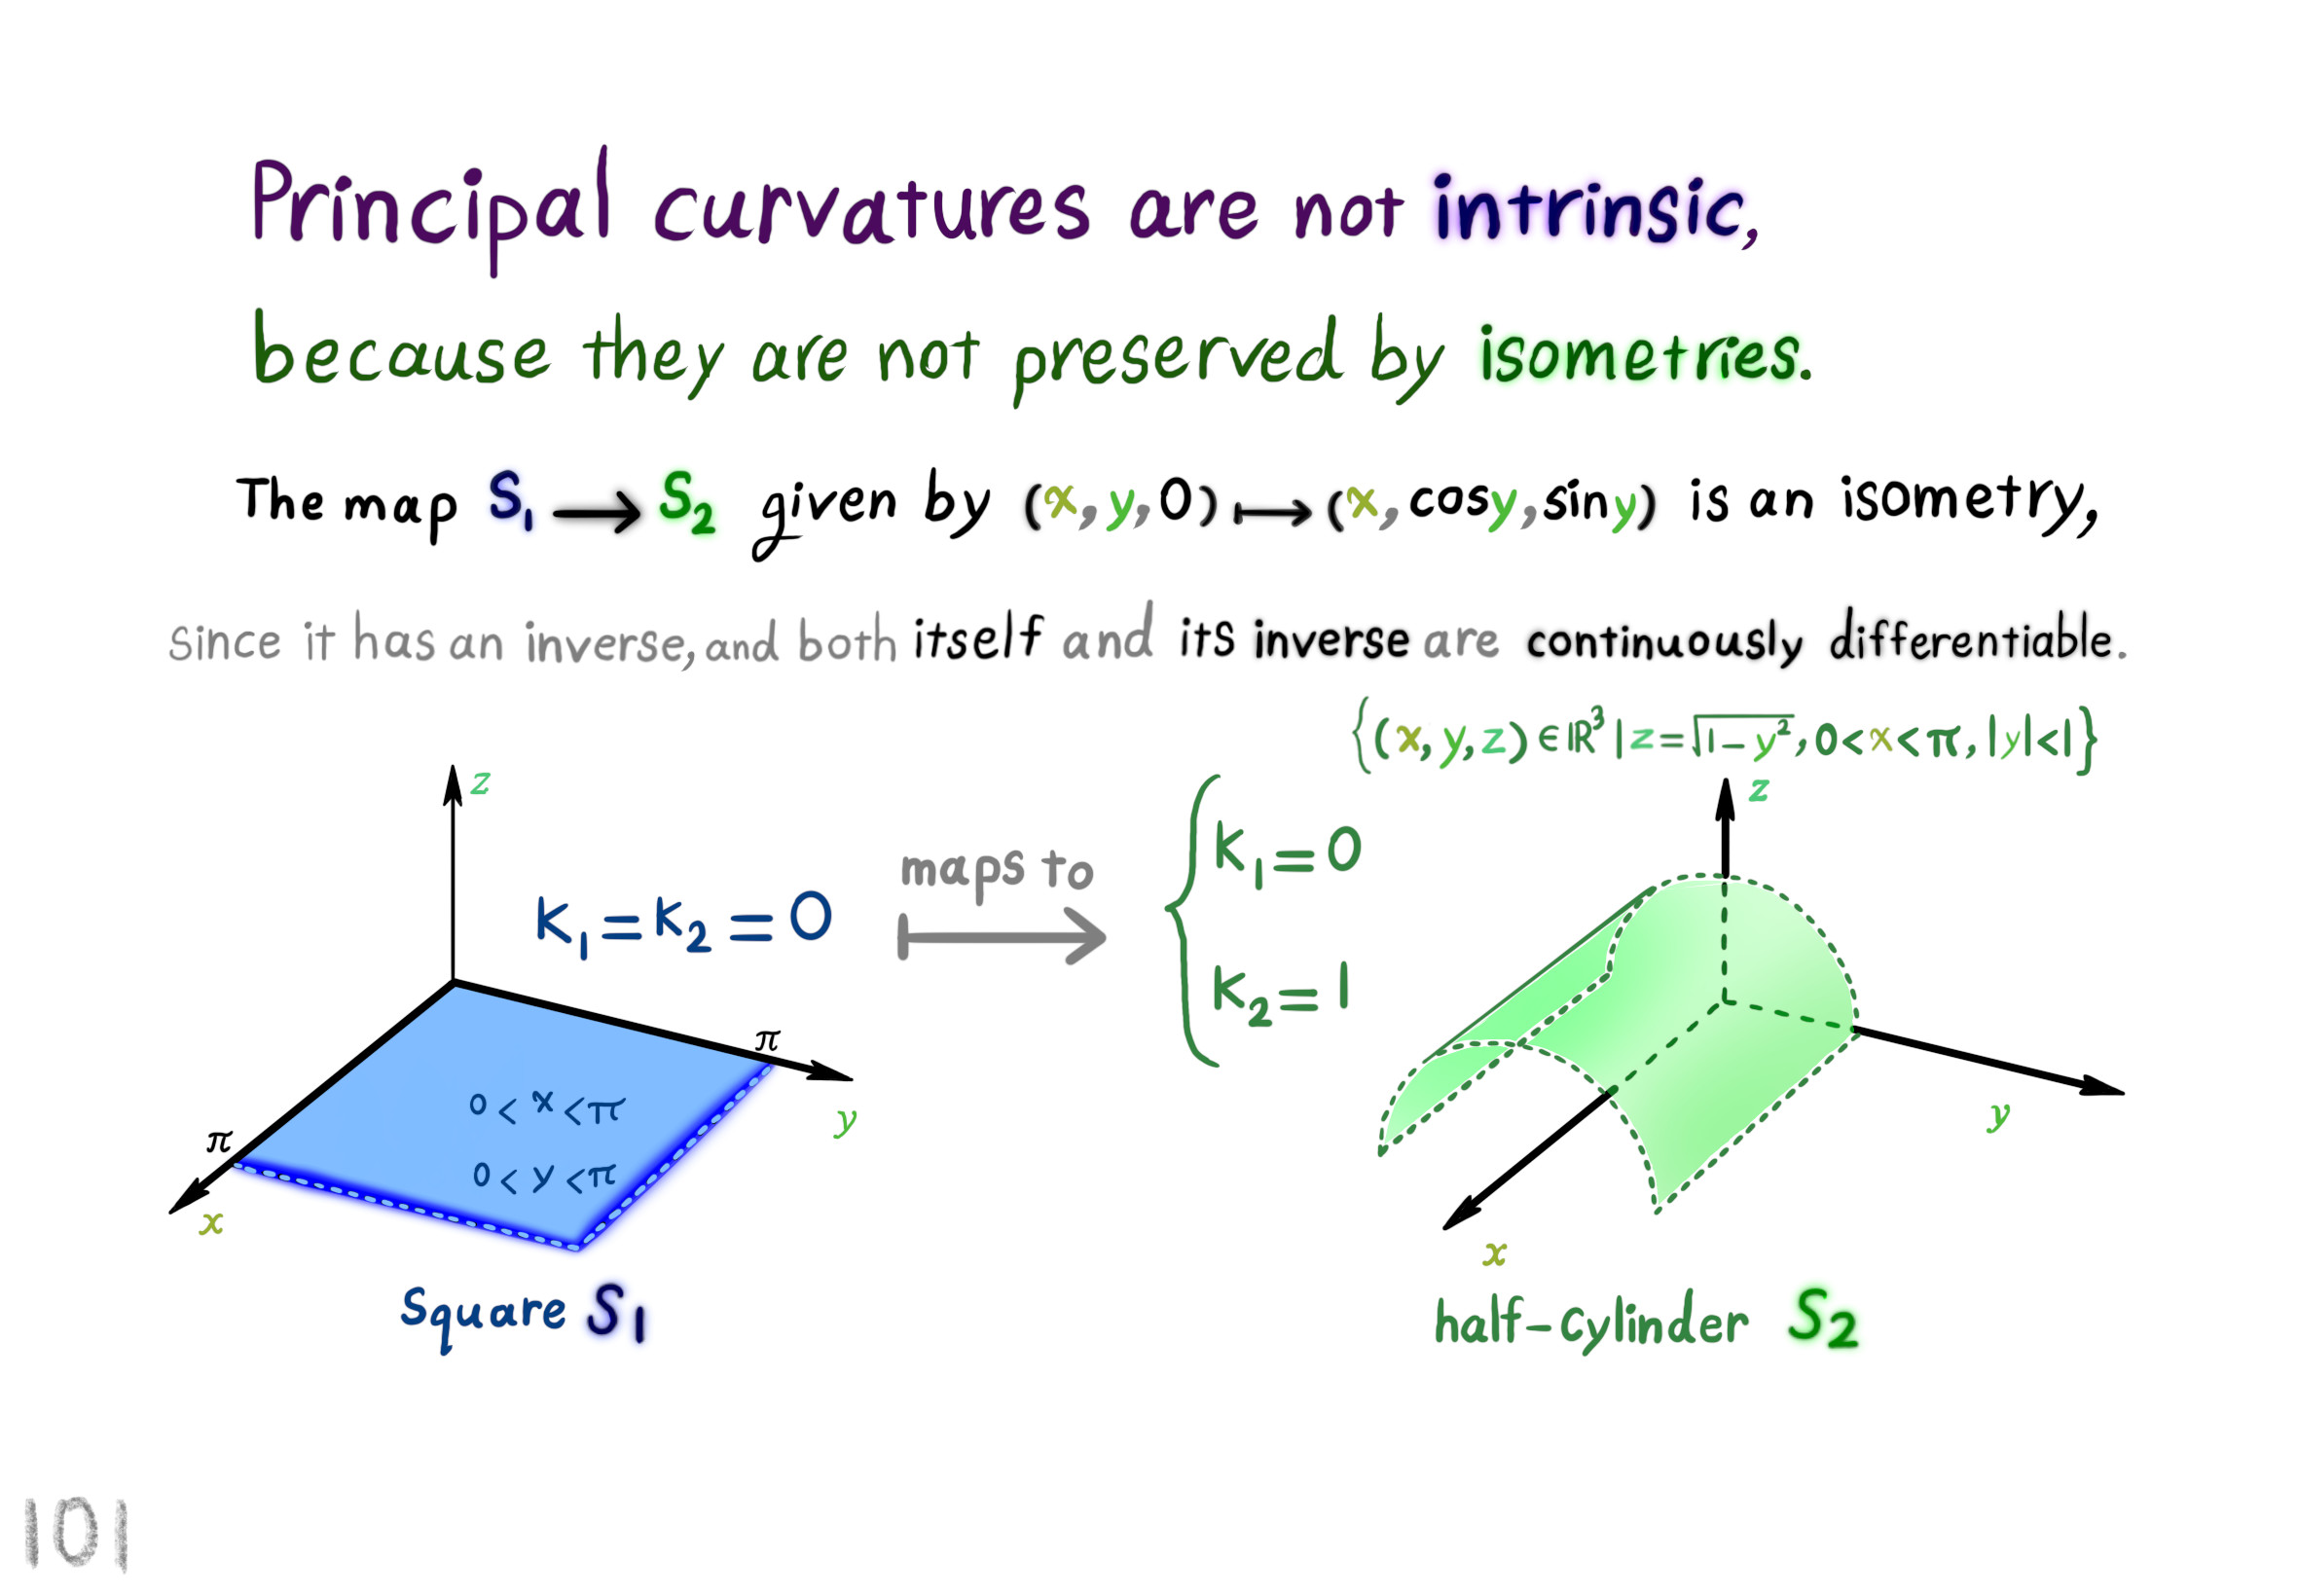 Principal curvatures are not intrinsic,
because they are not preserved by isometries.
The map S₁ ⟶ S₂ given by (x, y, 0) ⟼ (x, cosy, siny) is an isometry,
since it has an inverse, and both itself and its inverse are continuously differentiable.
{(x, y, z) ∈ ℝ³ | z = √(1 − y²), 0 < x < π, |y| < 1}
z
k₁ = k₂ = 0
maps to
k₁ = 0
k₂ = 1
z
π
0 < x < π
0 < y < π
π
y
x
y
x
Square S₁
half-cylinder S₂
101